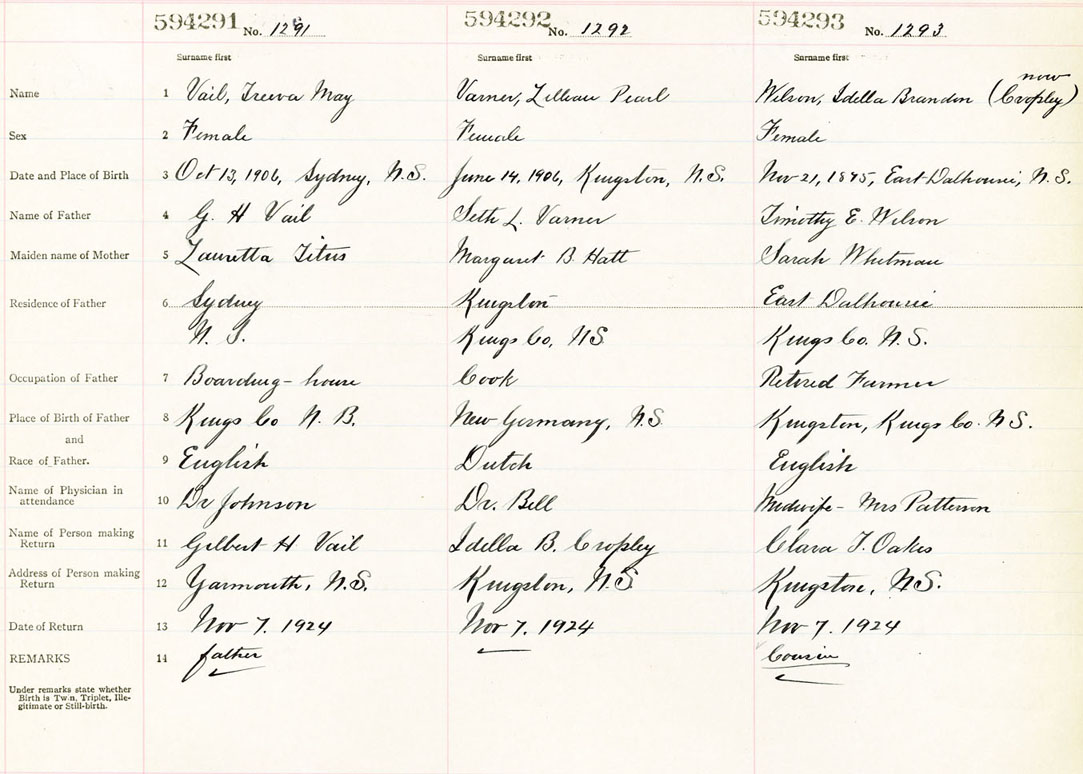 594291 No. 1291 594292 No. 1292 594293 No. 1293
Surname first Surname first Surname first
now
Name 1 Vail, Treeva May Varner, Lillian Pearl Wilson, Idella Brandon (Cropley)
Sex 2 Female Female Female
Date and Place of Birth 3 Oct 13, 1906, Sydney, N.S. June 14, 1906, Kingston, N.S. Nov 21, 1875, East Dalhousie, N.S.
Name of Father 4 G. H Vail Seth L. Varner Timothy E. Wilson
Maiden name of Mother 5 Lauretta Titus Margaret B Hatt Sarah Whitman
Residence of Father 6 Sydney Kingston East Dalhousie
N. S. Kings Co, NS Kings Co. N.S.
Occupation of Father 7 Boarding-house Cook Retired Farmer
Place of Birth of Father 8 Kings Co N. B. New Germany, N.S. Kingston, Kings Co. N.S.
and
Race of Father. 9 English Dutch English
Name of Physician in
attendance 10 Dr Johnson Dr. Bell Midwife - Mrs Patterson
Name of Person making
Return 11 Gilbert H Vail Idella B. Cropley Clara T. Oakes
Address of Person making
Return 12 Yarmouth, N.S. Kingston, N.S Kingston, N.S.
Date of Return 13 Nov 7. 1924 Nov 7. 1924 Nov 7. 1924
REMARKS 14 father Cousin
Under remarks state whether
Birth is Twin, Triplet, Ille-
gitimate or Still-birth.